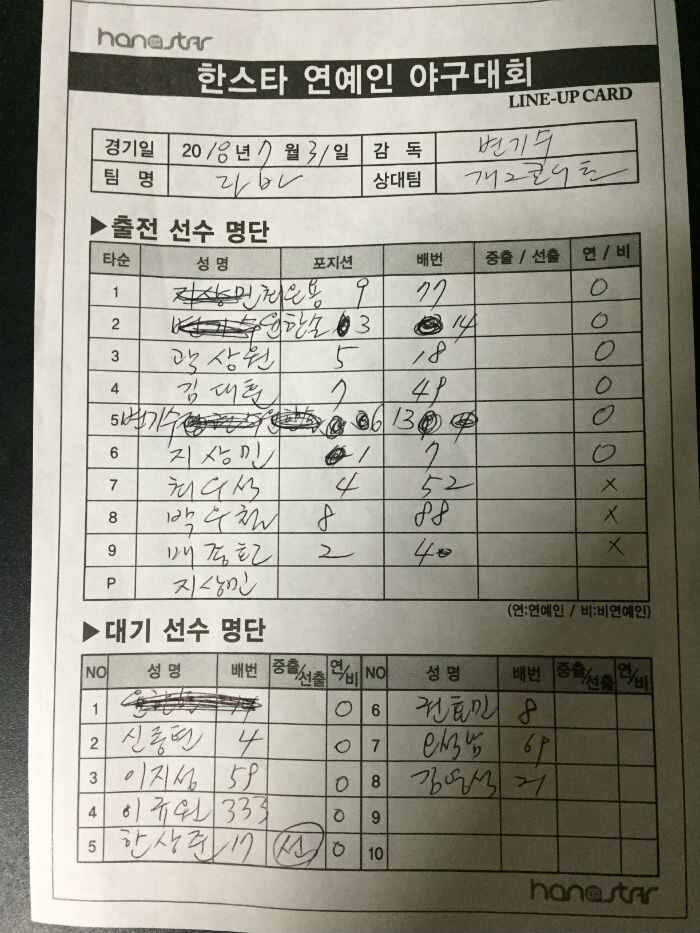 hanastar
한스타 연예인 야구대회
LINE-UP CARD
경기일 2018년 7월 31일 감 독 변기수
팀 명 라바 상대팀 개그콘서트
▶출전 선수 명단
타순 성 명 포지션 배번 중출 / 선출 연 / 비
1 최은용 9 77 O
2 윤한솔 3 14 O
3 곽상원 5 18 O
4 김대훈 7 49 O
5 변기수 6 13 O
6 지상민 1 7 O
7 최우석 4 52 X
8 박우철 8 88 X
9 배종훈 2 X
P 지상민
(연:연예인 / 비:비연예인)
▶대기 선수 명단
NO 성 명 배번 중출/선출 연/비 NO 성 명 배번 중출/선출 연/비
1 O 6 권효민 8
2 4 O 7 69
3 이지성 59 O 8 김영석 21
4 이규원 333 O 9
5 한상준 17 선 O 10
hanastar